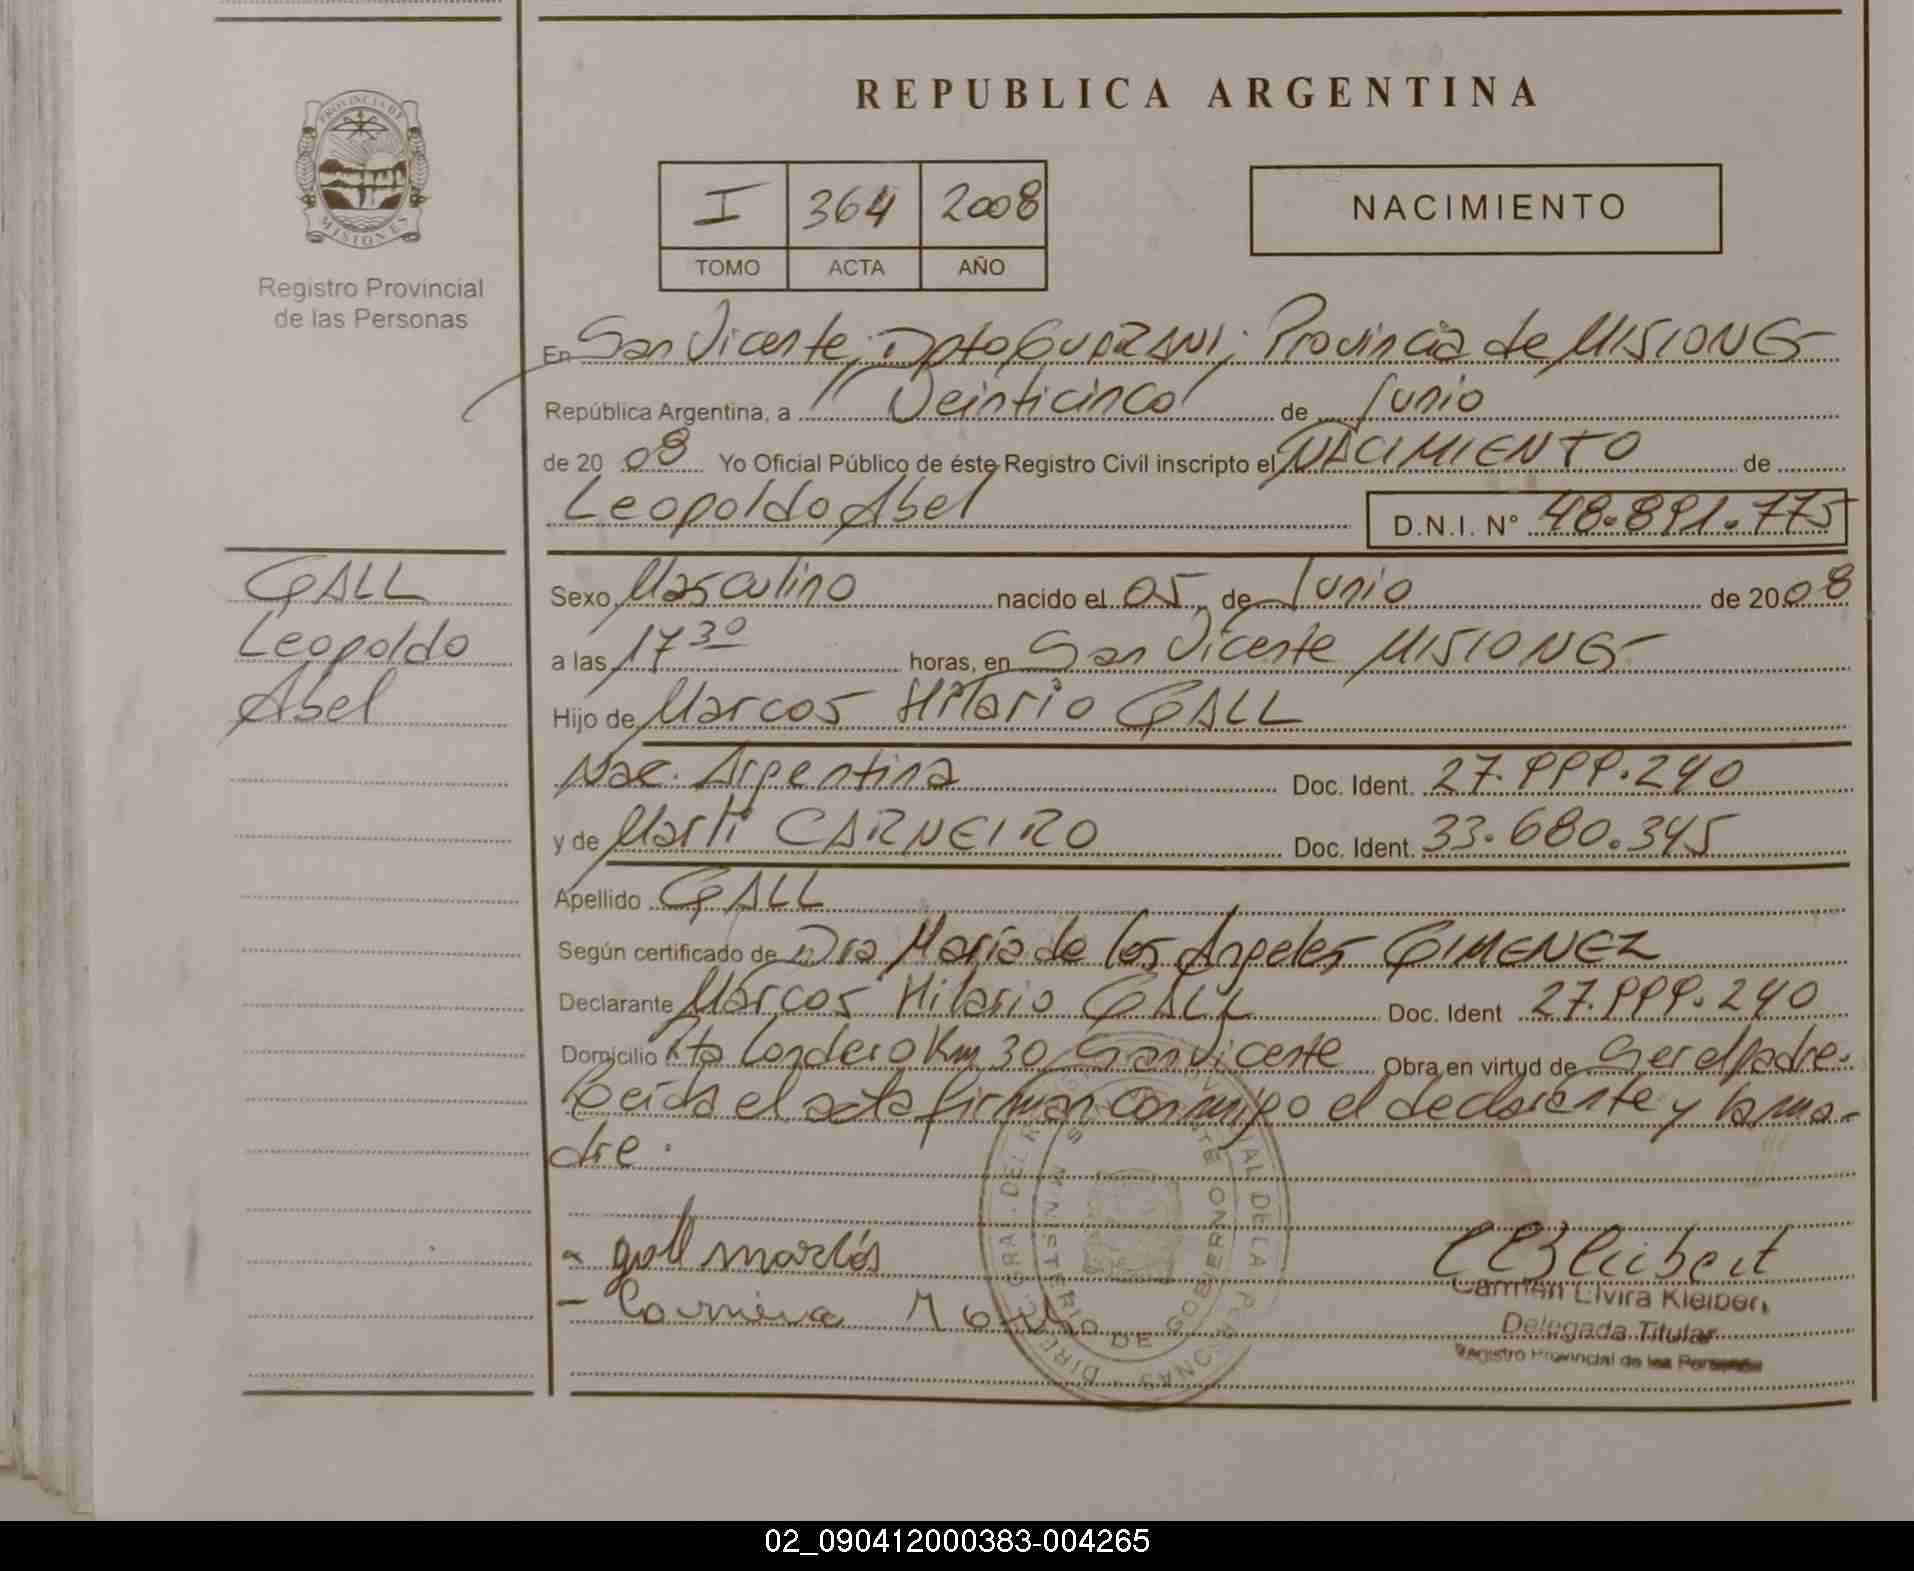 REPUBLICA ARGENTINA
PROVINCIA DE
MISIONES
Registro Provincial
de las Personas
I 364 2008
TOMO ACTA AÑO
NACIMIENTO
En San Vicente, Dpto GUARANI, Provincia de MISIONES
República Argentina, a Veinticinco de Junio
de 2008 Yo Oficial Público de éste Registro Civil inscripto el NACIMIENTO de
Leopoldo Abel D.N.I. N° 48.891.775
GALL
Leopoldo
Abel
Sexo Masculino nacido el 05 de Junio de 2008
a las 17 30 horas, en San Vicente MISIONES
Hijo de Marcos Hilario GALL
Nac. Argentina Doc. Ident. 27.999.240
y de Marli CARNEIRO Doc. Ident. 33.680.345
Apellido GALL
Según certificado de Dra Maria de los Angeles GIMENEZ
Declarante Marcos Hilario GALL Doc. Ident 27.999.240
Domicilio Rta Londero Km 30 San Vicente Obra en virtud de Ser el padre.
Leida el acta firman conmigo el declarante y la ma-
dre.
- gall marcos
- Carneiro
Carmen Elvira Kleibert
Delegada Titular
Registro Provincial de las Personas
MINISTERIO DE GOBIERNO
02_090412000383-004265